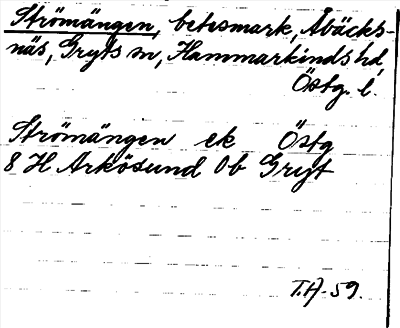 Strömängen, betesmark, Åbäcks-
näs, Gryts sn, Hammarkinds hd,
Östg. l.
Strömängen ek Östg
8 H Arkösund Ob Gryt
T.A-59.